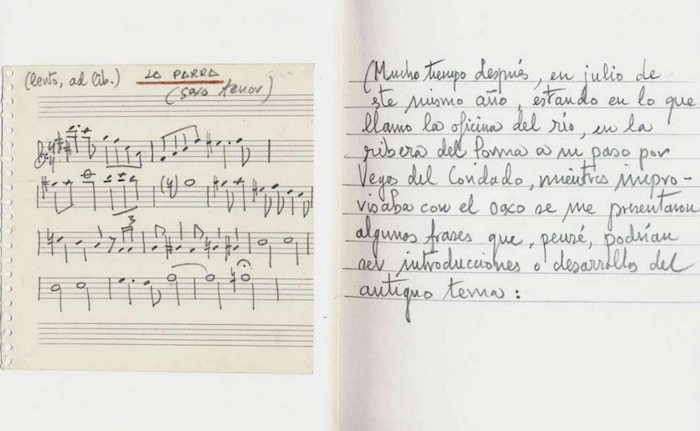 (lento, ad lib.) LA PARRA
(saxo tenor)
3
(Mucho tiempo después, en julio de
este mismo año, estando en lo que
llamo la oficina del río, en la
ribera del Porma a su paso por
Vegas del Condado, mientras impro-
visaba con el saxo se me presentaron
algunas frases que, pensé, podrían
ser introducciones o desarrollos del
antiguo tema: